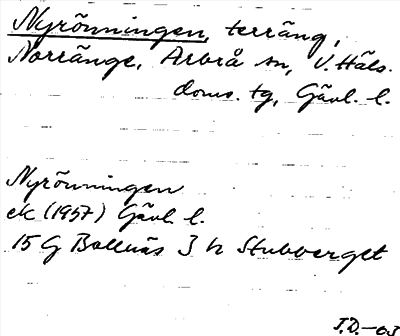 Nyrönningen, terräng,
Norränge, Arbrå sn, V. Häls.
doms. tg, Gävl. l.
Nyrönningen
ek (1957) Gävl. l.
15 G Bollnäs 3 h Stubberget
J.D.-03